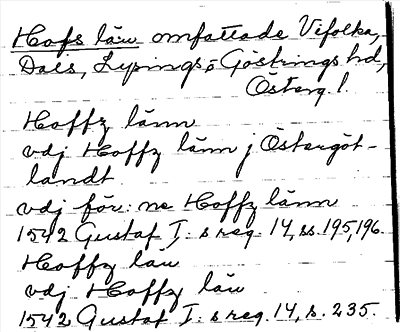 Hofs län omfattade Vifolka,
Dals, Lysings, o Göstrings hd,
Österg. l.
Hoffz länn
vdj Hoffz länn j Östergöt-
landt
vdj för: ne Hoffz länn
1542 Gustaf I: s reg. 14, ss. 195, 196.
Hoffz län
vdj Hoffz län
1542 Gustaf I: s reg. 14, s. 235.